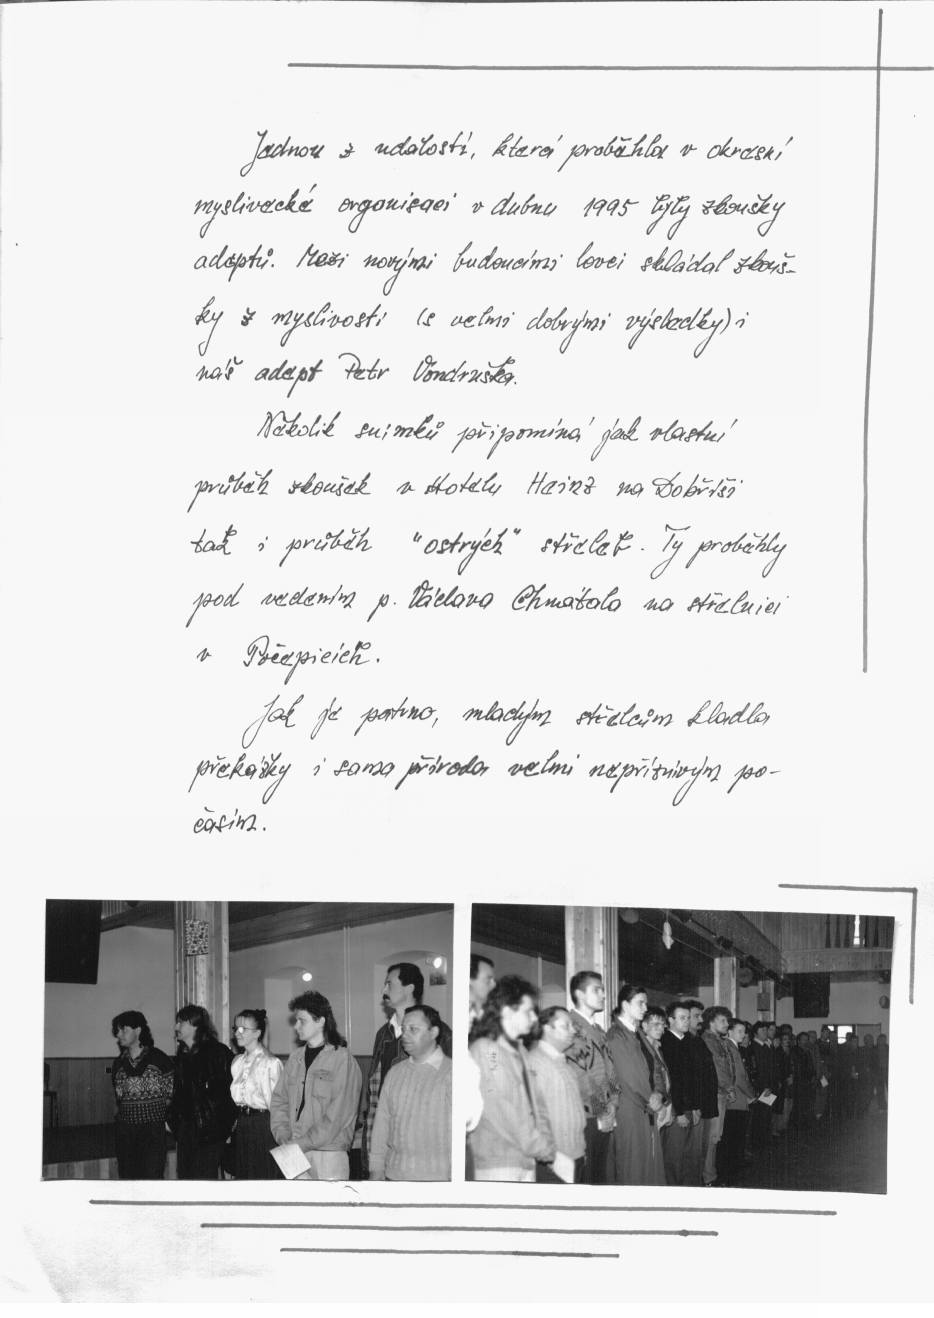 Jednou z událostí, která proběhla v okresní
myslivecké organisaci v dubnu 1995 byly zkoušky
adeptů. Mezi novými budoucími lovci skládal zkouš-
ky z myslivosti (s velmi dobrými výsledky) i
náš adept Petr Vondruška.
Několik snímků připomíná jak vlastní
průběh zkoušek v Hotelu Heinz na Dobříši
tak i průběh "ostrých" střeleb. Ty proběhly
pod vedením p. Václava Chmátala na střelnici
v Počepicích.
Jak je patrno, mladým střelcům kladla
překážky i sama příroda velmi nepříznivým po-
časím.